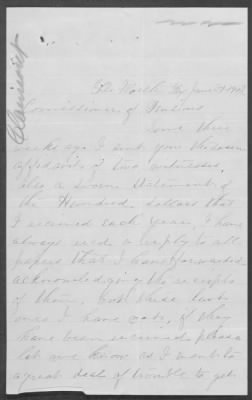 Claimant
Ft. Worth Tex June
Commissioner of Pensions
Some three
weeks ago I sent you the sworn
affidavits of two witnesses
also a sworn Statement of
the Hundred dollars that
I received each year. I have
always recd a reply to all
papers that I have forwarded
acknowledging the receipts
of them, but these last
ones I have not, if they
have been received please
let me know as I went to
a great deal of trouble to get